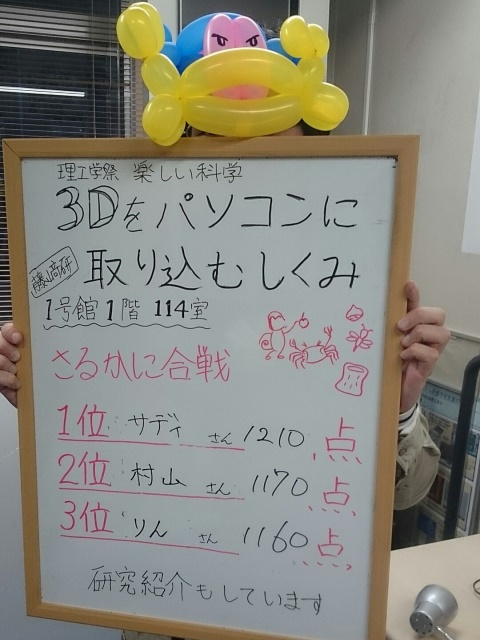 理工学祭 楽しい科学
3Dをパソコンに
取り込むしくみ
1号館1階 114室
さるかに合戦
1位 サディ さん 1210点
2位 村山 さん 1170点
3位 りん さん 1160点
研究紹介もしています